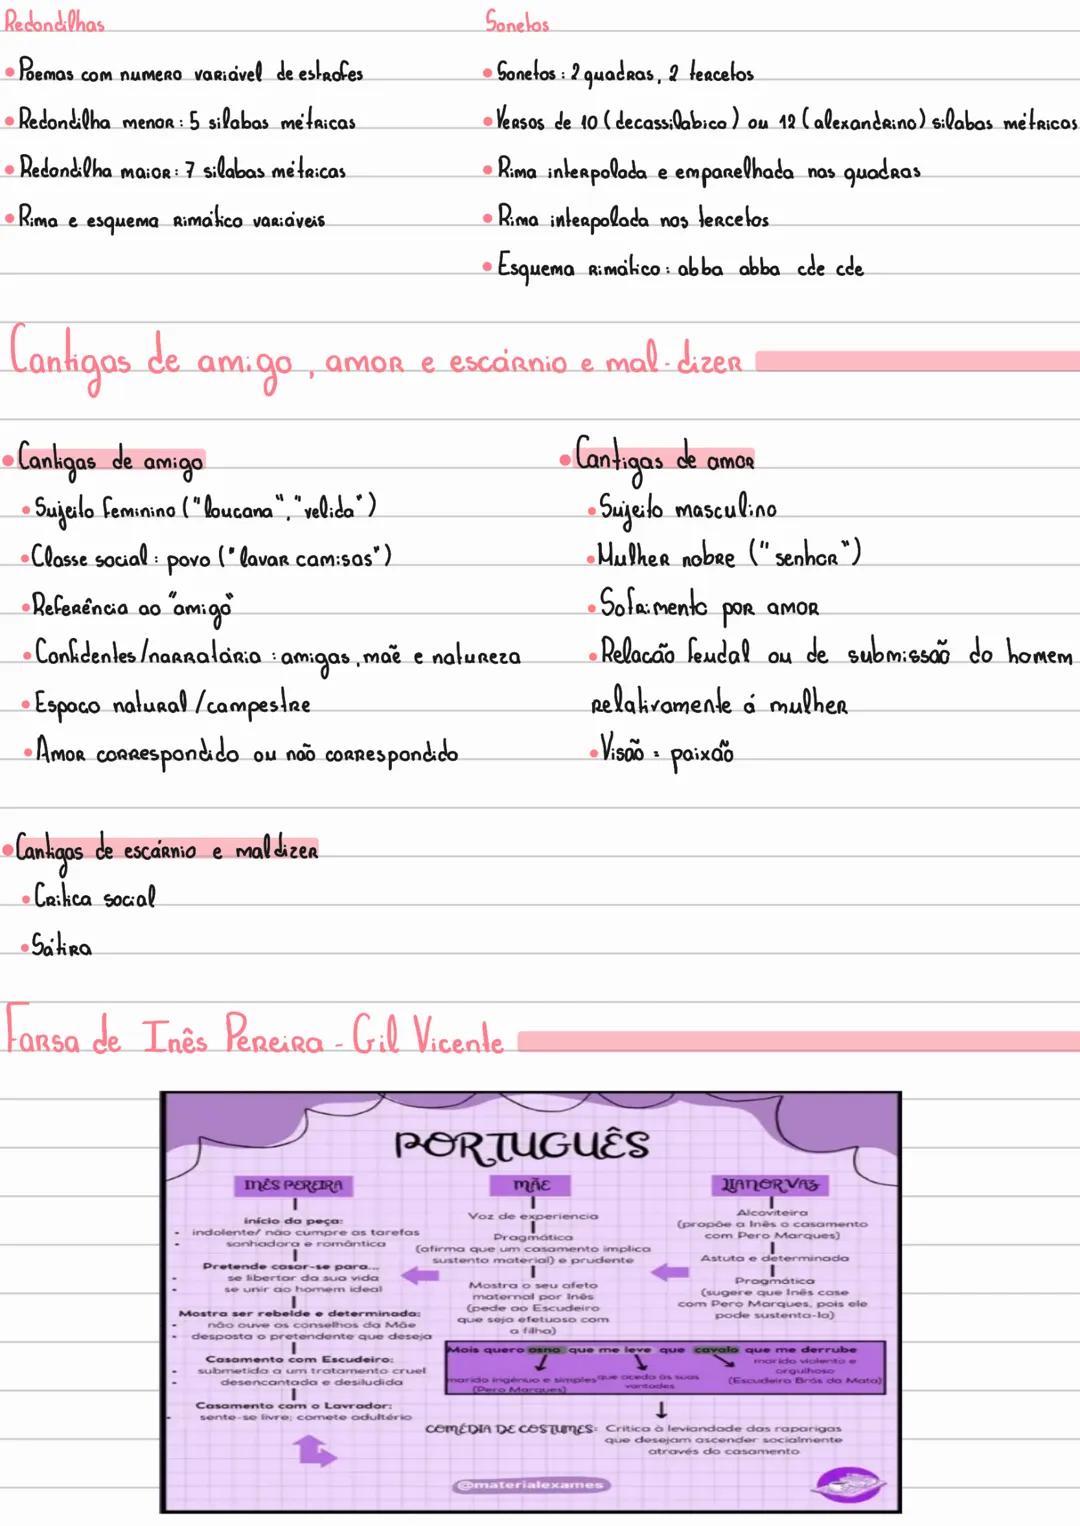 Redondilhas
• Poemas com numero variável de estrofes
• Redondilha menor: 5 silabas métricas
• Redondilha maior: 7 silabas métricas
• Rima e esquema rimático variáveis
Sonetos
• Sonetos: 2 quadras, 2 tercetos
• Versos de 10 (decassilábico) ou 12 (alexandrino) silabas métricas
• Rima interpolada e emparelhada nas quadras
• Rima interpolada nos tercetos
• Esquema rimático: abba abba cde cde
Cantigas de amigo, amor e escárnio e mal-dizer
• Cantigas de amigo
• Sujeito feminino ("loucana", "velida")
• Classe social: povo ("lavar camisas")
• Referência ao "amigo"
• Confidentes/narratária: amigas, mãe e natureza
• Espaco natural/campestre
• Amor correspondido ou não correspondido
• Cantigas de amor
• Sujeito masculino
• Mulher nobre ("senhor")
• Sofrimento por amor
• Relacão feudal ou de submissão do homem
relativamente á mulher
• Visão = paixão
• Cantigas de escárnio e maldizer
• Critica social
• Sátira
Farsa de Inês Pereira - Gil Vicente
PORTUGUÊS
INÊS PEREIRA
início da peça:
• indolente/ não cumpre as tarefas
• sonhadora e romântica
Pretende casar-se para...
• se libertar da sua vida
• se unir ao homem ideal
Mostra ser rebelde e determinada:
• não ouve os conselhos da Mãe
• desposta o pretendente que deseja
Casamento com Escudeiro:
• submetida a um tratamento cruel
• desencantada e desiludida
Casamento com o Lavrador:
• sente-se livre; comete adultério
MÃE
Voz de experiencia
Pragmática
(afirma que um casamento implica
sustento material) e prudente
Mostra o seu afeto
maternal por Inês
(pede ao Escudeiro
que seja efetuoso com
a filha)
LIANOR VAZ
Alcoviteira
(propõe a Inês o casamento
com Pero Marques)
Astuta e determinada
Pragmática
(sugere que Inês case
com Pero Marques, pois ele
pode sustenta-la)
Mais quero asno que me leve que cavalo que me derrube
marido ingénuo e simples
(Pero Marques)
que aceda às suas
vontades
marido violento e
orgulhoso
(Escudeiro Brás da Mata)
COMÉDIA DE COSTUMES: Critica à leviandade das raparigas
que desejam ascender socialmente
através do casamento
@materialexames